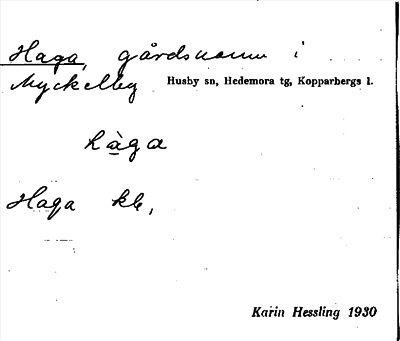 Haga, gårdsnamn i
Myckelby Husby sn, Hedemora tg, Kopparbergs l.
hàga
Haga kb,
Karin Hessling 1930